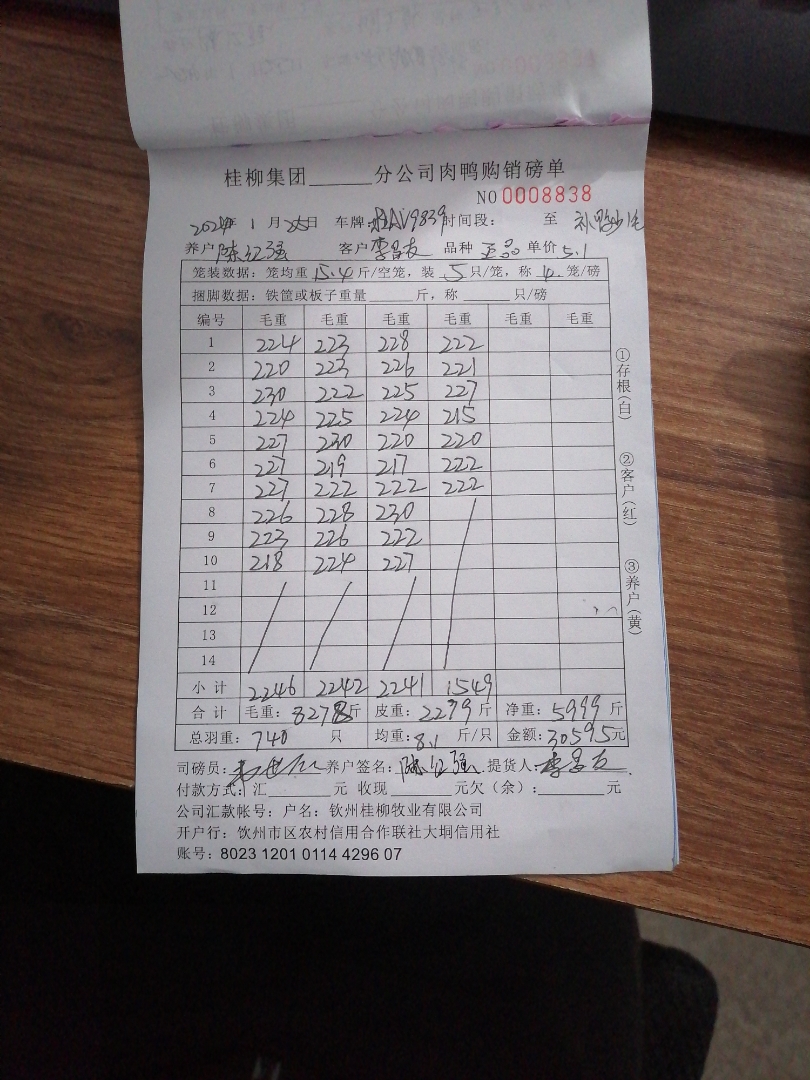 桂柳集团______分公司肉鸭购销磅单
NO 0008838
2024年 1 月 25日 车牌:桂AV9839 时间段: 至 补鸭
养户 陈红强 客户 李昌友 品种 正品 单价 5.1
笼装数据: 笼均重 15.4 斤/空笼, 装 5 只/笼, 称 4 笼/磅
捆脚数据: 铁筐或板子重量______斤, 称______只/磅
编号 毛重 毛重 毛重 毛重 毛重 毛重
1 224 223 228 222
2 220 223 226 221
3 230 222 225 227
4 224 225 224 215
5 227 230 220 220
6 227 219 217 222
7 227 222 222 222
8 226 228 230
9 223 226 222
10 218 224 227
11
12
13
14
小计 2246 2242 2241 1549
合计 毛重: 8278斤 皮重: 2279斤 净重: 5999斤
总羽重: 740 只 均重: 8.1 斤/只 金额: 30595元
司磅员: 养户签名: 陈红强 提货人: 李昌友
付款方式: 汇______元 收现______元欠(余):______元
公司汇款帐号: 户名: 钦州桂柳牧业有限公司
开户行: 钦州市区农村信用合作联社大垌信用社
账号: 8023 1201 0114 4296 07
①存根(白)
②客户(红)
③养户(黄)